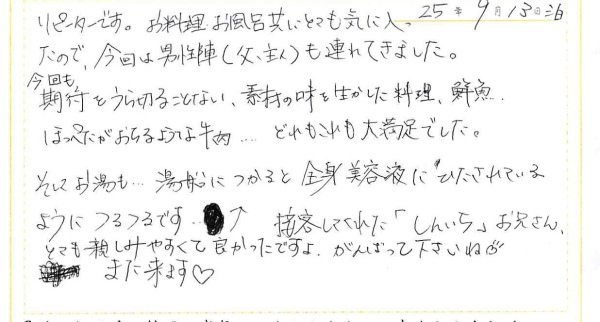 25年9月13日泊
リピーターです。お料理お風呂共にとても気に入っ
たので、今回は男性陣(父、主人)も連れてきました。
今回も
期待をうら切ることない、素材の味を生かした料理、鮮魚、
ほっぺたがおちるような牛肉… どれもこれも大満足でした。
そしてお湯も… 湯船につかると全身美容液に"ひたされている
ようにつるつるです…↑ 接客してくれた「しんいち」お兄さん、
とても親しみやすくて良かったですよ。がんばって下さいね
また来ます♡